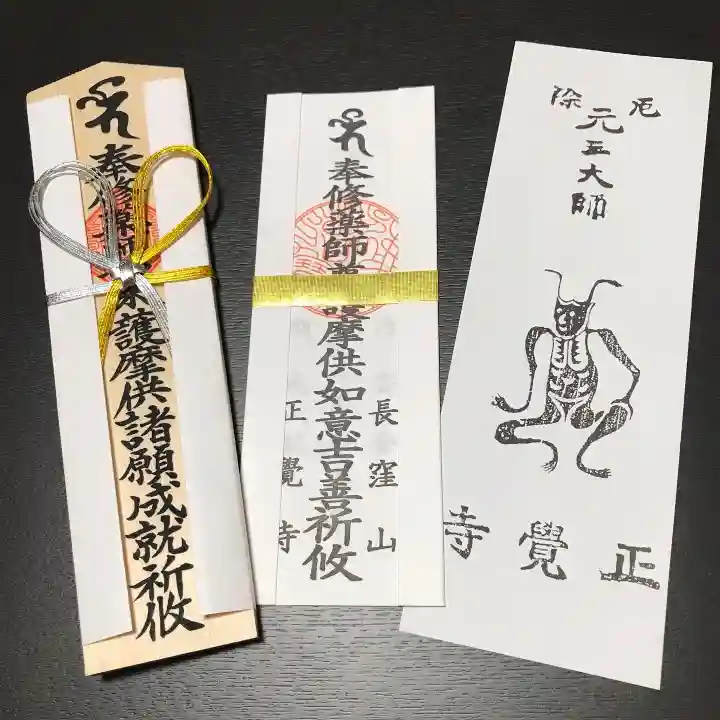 奉修薬師護摩供諸願成就祈攸
奉修薬師護摩供如意吉善祈攸
長窪山
正覺寺
厄除
元三大師
正覺寺